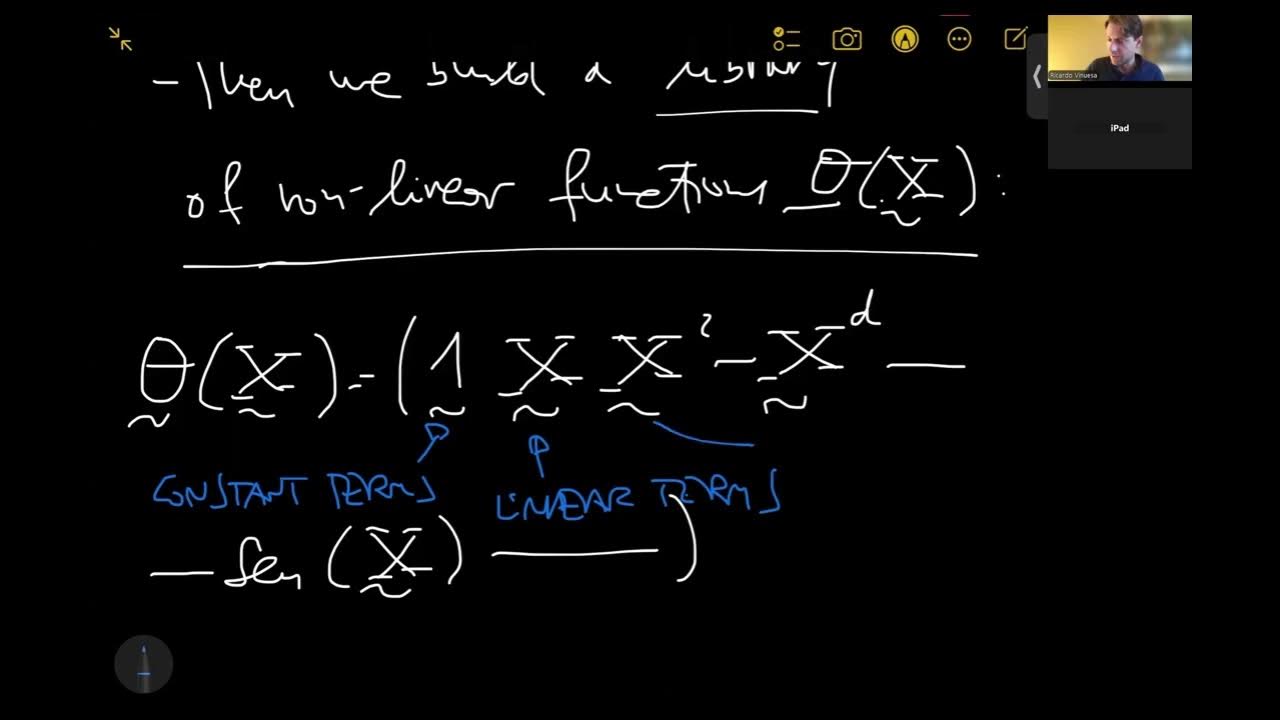 - Then we build a library
of non-linear functions θ(X):
θ(X) = (1 X X² — X^d —
CONSTANT TERMS LINEAR TERMS
— Sen(X) —)
Ricardo Vinuesa
iPad